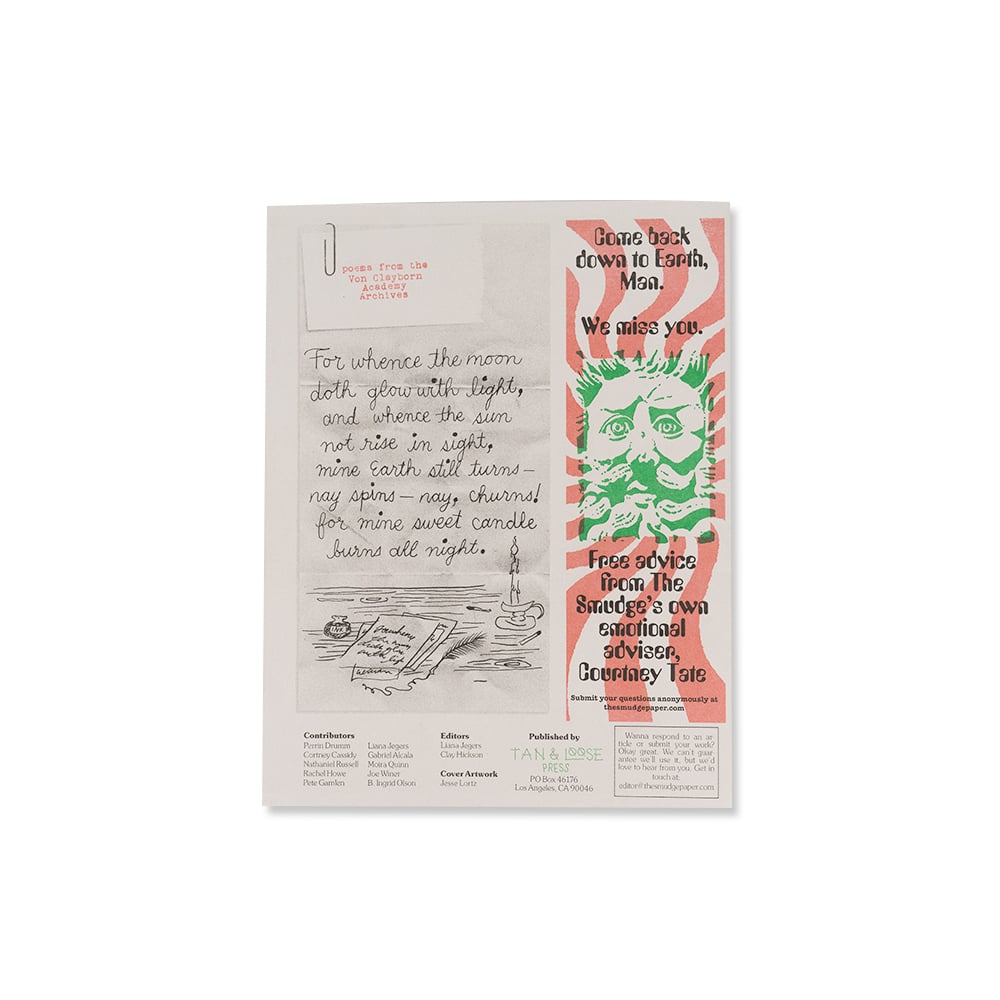 poems from the
Von Clayborn
Academy
Archives
For whence the moon
doth glow with light,
and whence the sun
not rise in sight,
mine Earth still turns—
nay spins — nay, churns!
for mine sweet candle
burns all night.
INK
Come back
down to Earth,
Man.
We miss you.
Free advice
from The
Smudge's own
emotional
adviser,
Courtney Tate
Submit your questions anonymously at
thesmudgepaper.com
Contributors
Perrin Drumm
Cortney Cassidy
Nathaniel Russell
Rachel Howe
Pete Gamlen
Liana Jegers
Gabriel Alcala
Moira Quinn
Joe Winer
B. Ingrid Olson
Editors
Liana Jegers
Clay Hickson
Cover Artwork
Jesse Lortz
Published by
TAN & LOOSE
PRESS
PO Box 46176
Los Angeles, CA 90046
Wanna respond to an ar-
ticle or submit your work?
Okay great. We can't guar-
antee we'll use it, but we'd
love to hear from you. Get in
touch at:
editor@thesmudgepaper.com